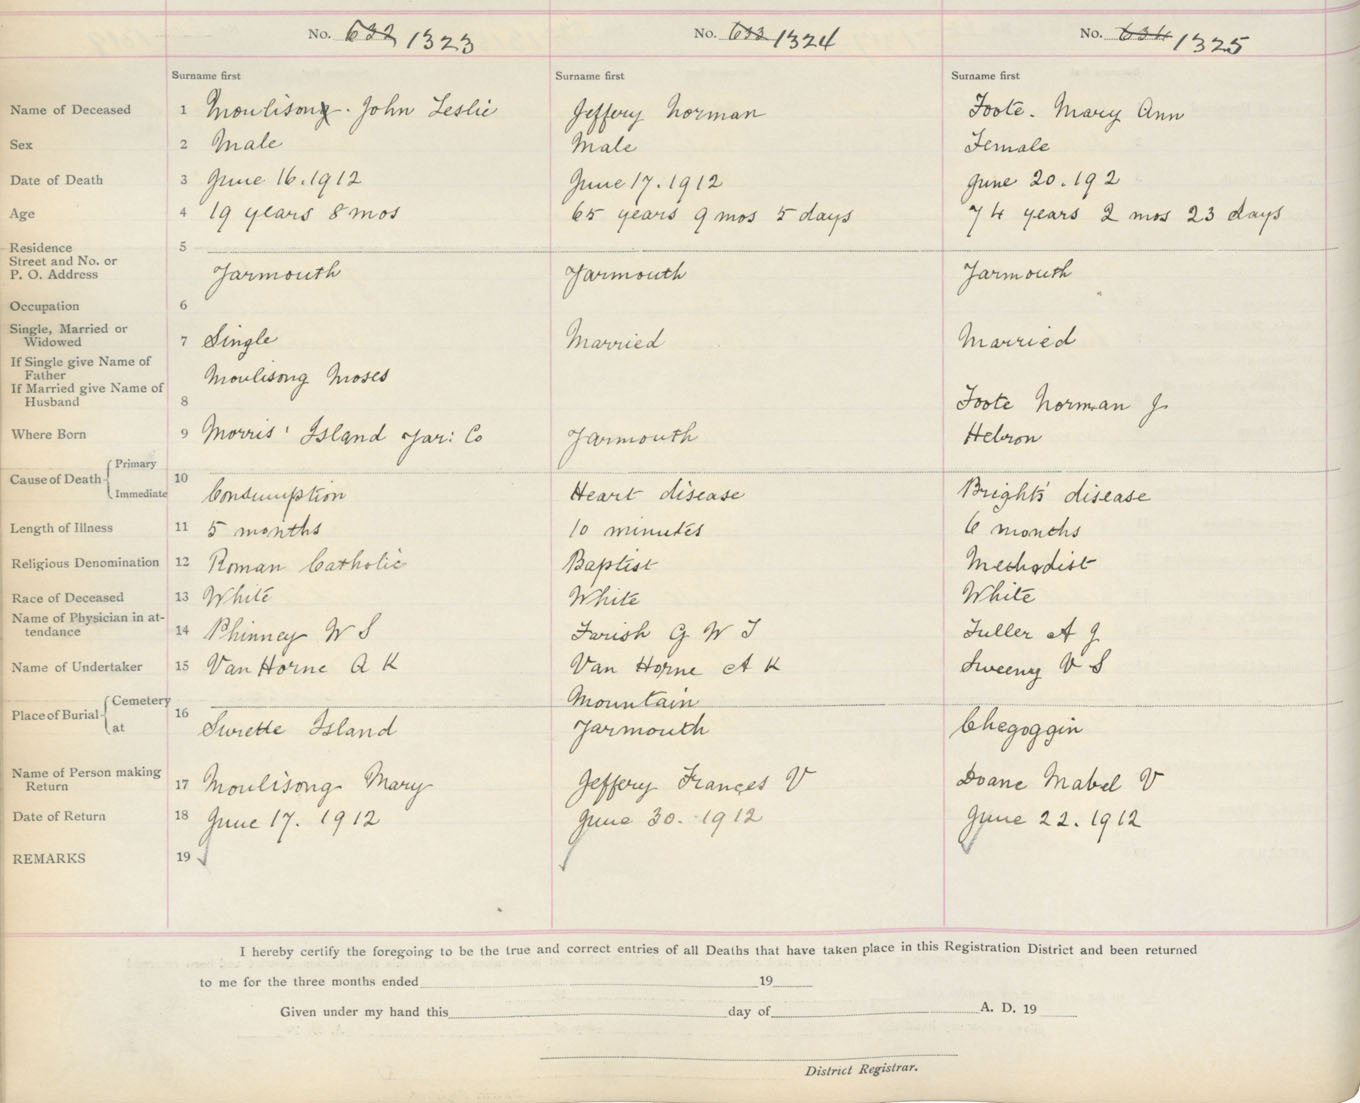 No. 632 1323 No. 633 1324 No. 634 1325
Surname first Surname first Surname first
Name of Deceased 1 Moulisong. John Leslie Jeffery Norman Foote. Mary Ann
Sex 2 Male Male Female
Date of Death 3 June 16.1912 June 17.1912 June 20.192
Age 4 19 years 8 mos 65 years 9 mos 5 days 74 years 2 mos 23 days
Residence 5
Street and No. or
P. O. Address Yarmouth Yarmouth Yarmouth
Occupation 6
Single, Married or
Widowed 7 Single Married Married
If Single give Name of
Father Moulisong Moses
If Married give Name of
Husband 8 Foote Norman J
Where Born 9 Morris' Island Yar: Co Yarmouth Hebron
Cause of Death Primary 10
Immediate Consumption Heart disease Brights' disease
Length of Illness 11 5 months 10 minutes 6 months
Religious Denomination 12 Roman Catholic Baptist Methodist
Race of Deceased 13 White White White
Name of Physician in at-
tendance 14 Phinney W S Farish G W T Fuller A J
Name of Undertaker 15 Van Horne A K Van Horne A K Sweeny V S
Place of Burial Cemetery 16 Mountain
at Surette Island Yarmouth Chegoggin
Name of Person making
Return 17 Moulisong Mary Jeffery Frances V Doane Mabel V
Date of Return 18 June 17. 1912 June 30. 1912 June 22. 1912
REMARKS 19
I hereby certify the foregoing to be the true and correct entries of all Deaths that have taken place in this Registration District and been returned
to me for the three months ended 19
Given under my hand this day of A. D. 19
District Registrar.